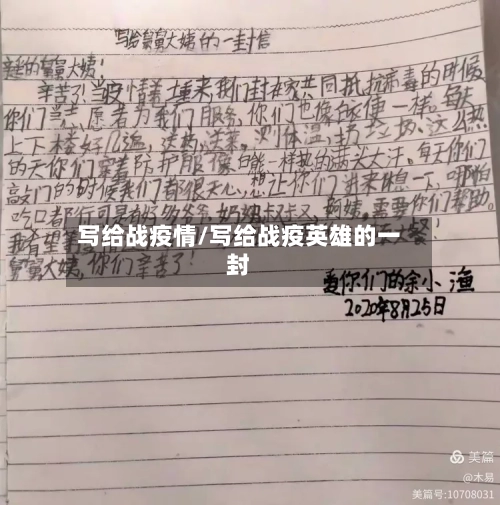 写给舅舅大姨的一封信
亲爱的舅舅大姨！
辛苦了！当疫情着重来我们封在家共同抵抗病毒的时候
你们当志愿者为我们服务，你们也像白衣天使一样。每天
上下楼好几遍，送药，送菜，测体温，封垃圾，这么热
的天你们穿着防护服像一样热的满头大汗。每天你们
敲门的时候我们都很开心，想让你们进来休息一下，哪怕
吃口都行可是有好多爷爷奶奶叔叔阿姨需要你们帮助。
我希望
写给战疫情/写给战疫英雄的一
封
舅舅大姨，你们辛苦了！
爱你们的余小渔
2020年8月25日
美篇
@木易
美篇号:10708031